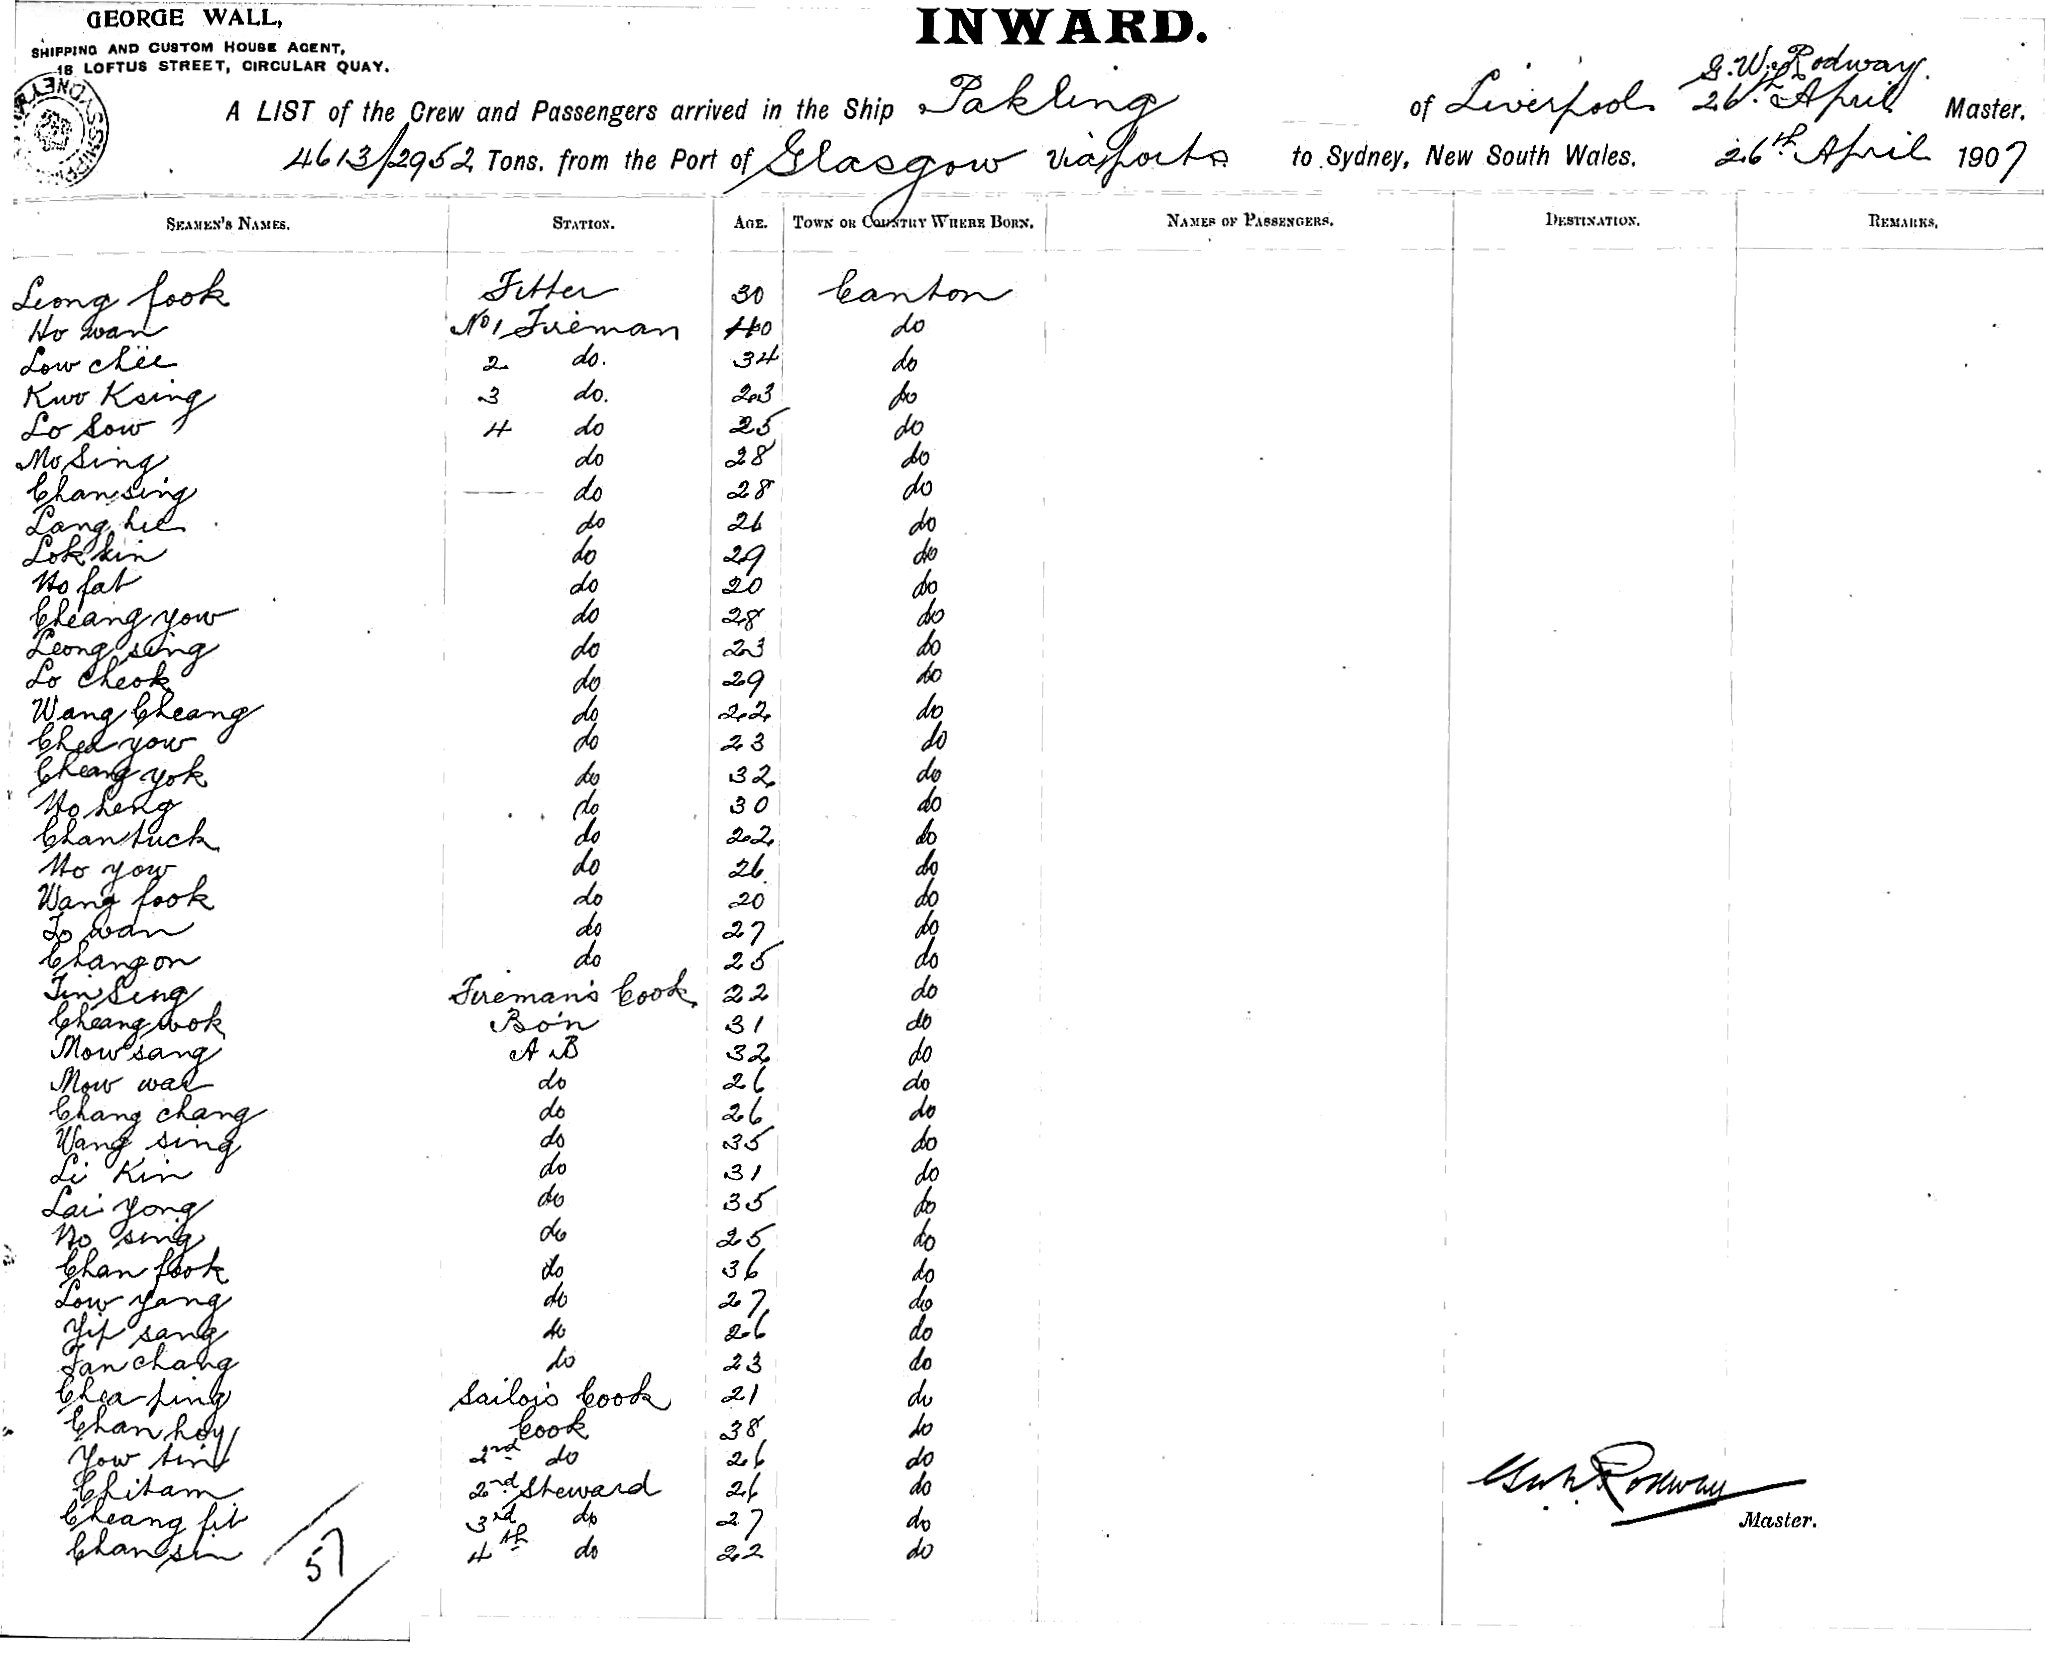 GEORGE WALL,
SHIPPING AND CUSTOM HOUSE AGENT,
18 LOFTUS STREET, CIRCULAR QUAY.
INWARD.
G. W. Rodway.
A LIST of the Crew and Passengers arrived in the Ship Pakling of Liverpool 26th April Master.
4613/2952 Tons. from the Port of Glasgow via ports to Sydney, New South Wales. 26th April 1907
SEAMEN'S NAMES. STATION. AGE. TOWN OR COUNTRY WHERE BORN. NAMES OF PASSENGERS. DESTINATION. REMARKS.
Leong fook Fitter 30 Canton
Ho wan No 1 Fireman 40 do
Low chee 2 do. 34 do
Kwo Ksing 3 do. 23 do
Lo Sow 4 do 25 do
Mo Sing do 28 do
Chan sing do 28 do
Lang hee do 26 do
Lok kin do 29 do
Ho fat do 20 do
Cheang yow do 28 do
Leong sing do 23 do
Lo Cheok do 29 do
Wang Cheang do 22 do
Chea yow do 23 do
Cheang yok do 32 do
Ho heng do 30 do
Chan tuck do 22 do
Ho yow do 26 do
Wang fook do 20 do
To wan do 27 do
Chang on do 25 do
Tin Seng Fireman's Cook 22 do
Cheang wok Bo'n 31 do
Mow sang A B 32 do
Mow wae do 26 do
Chang chang do 26 do
Wang sing do 35 do
Li Kin do 31 do
Lai Yong do 35 do
Ho sing do 25 do
Chan fook do 36 do
Low yang do 27 do
Yip sang do 26 do
Tan chang do 23 do
Chea ping Sailor's Cook 21 do
Chan hoy Cook 38 do
Yow tin 2nd do 26 do
Chitam 2nd Steward 26 do
Cheang fit 3rd do 27 do
Chan sin 4th do 22 do
57
Geo. W. Rodway
Master.